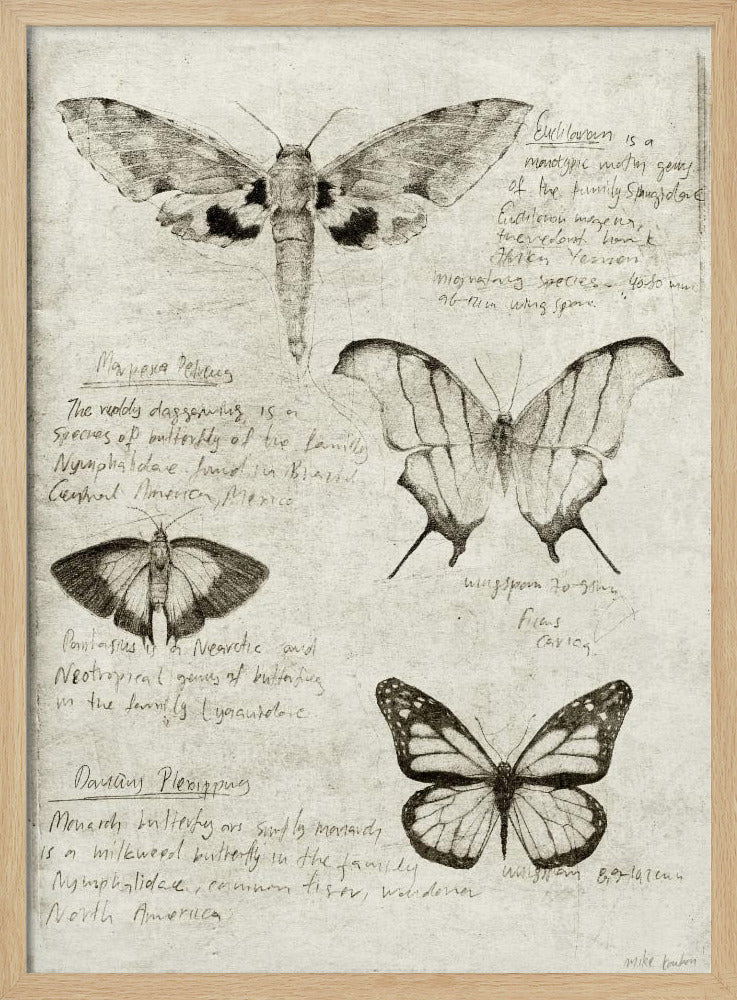 Euchloron is a
monotypic moth genus
of the family Sphingidae
Euchloron megera,
Yemen
migratory species
wing span
Marpesia Petreus
The ruddy daggerwing is a
Species of butterfly of the family
Nymphalidae found in Brazil
Central America, Mexico
wingspan 70-95mm
Ficus
carica
Pantasius is a Nearctic and
Neotropical genus of butterfly
in the family Lycaenidae
Danaus Plexippus
Monarch butterfly or simply monarch
is a milkweed butterfly in the family
Nymphalidae, common tiger, wanderer
North America
wingspan
mike